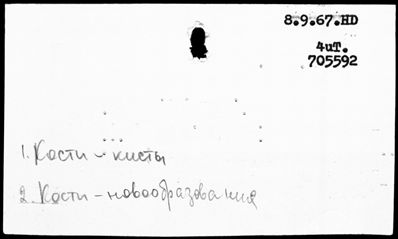 8.9.67.HD
4uT.
705592
1. Кости – кисты
2. Кости – новообразования